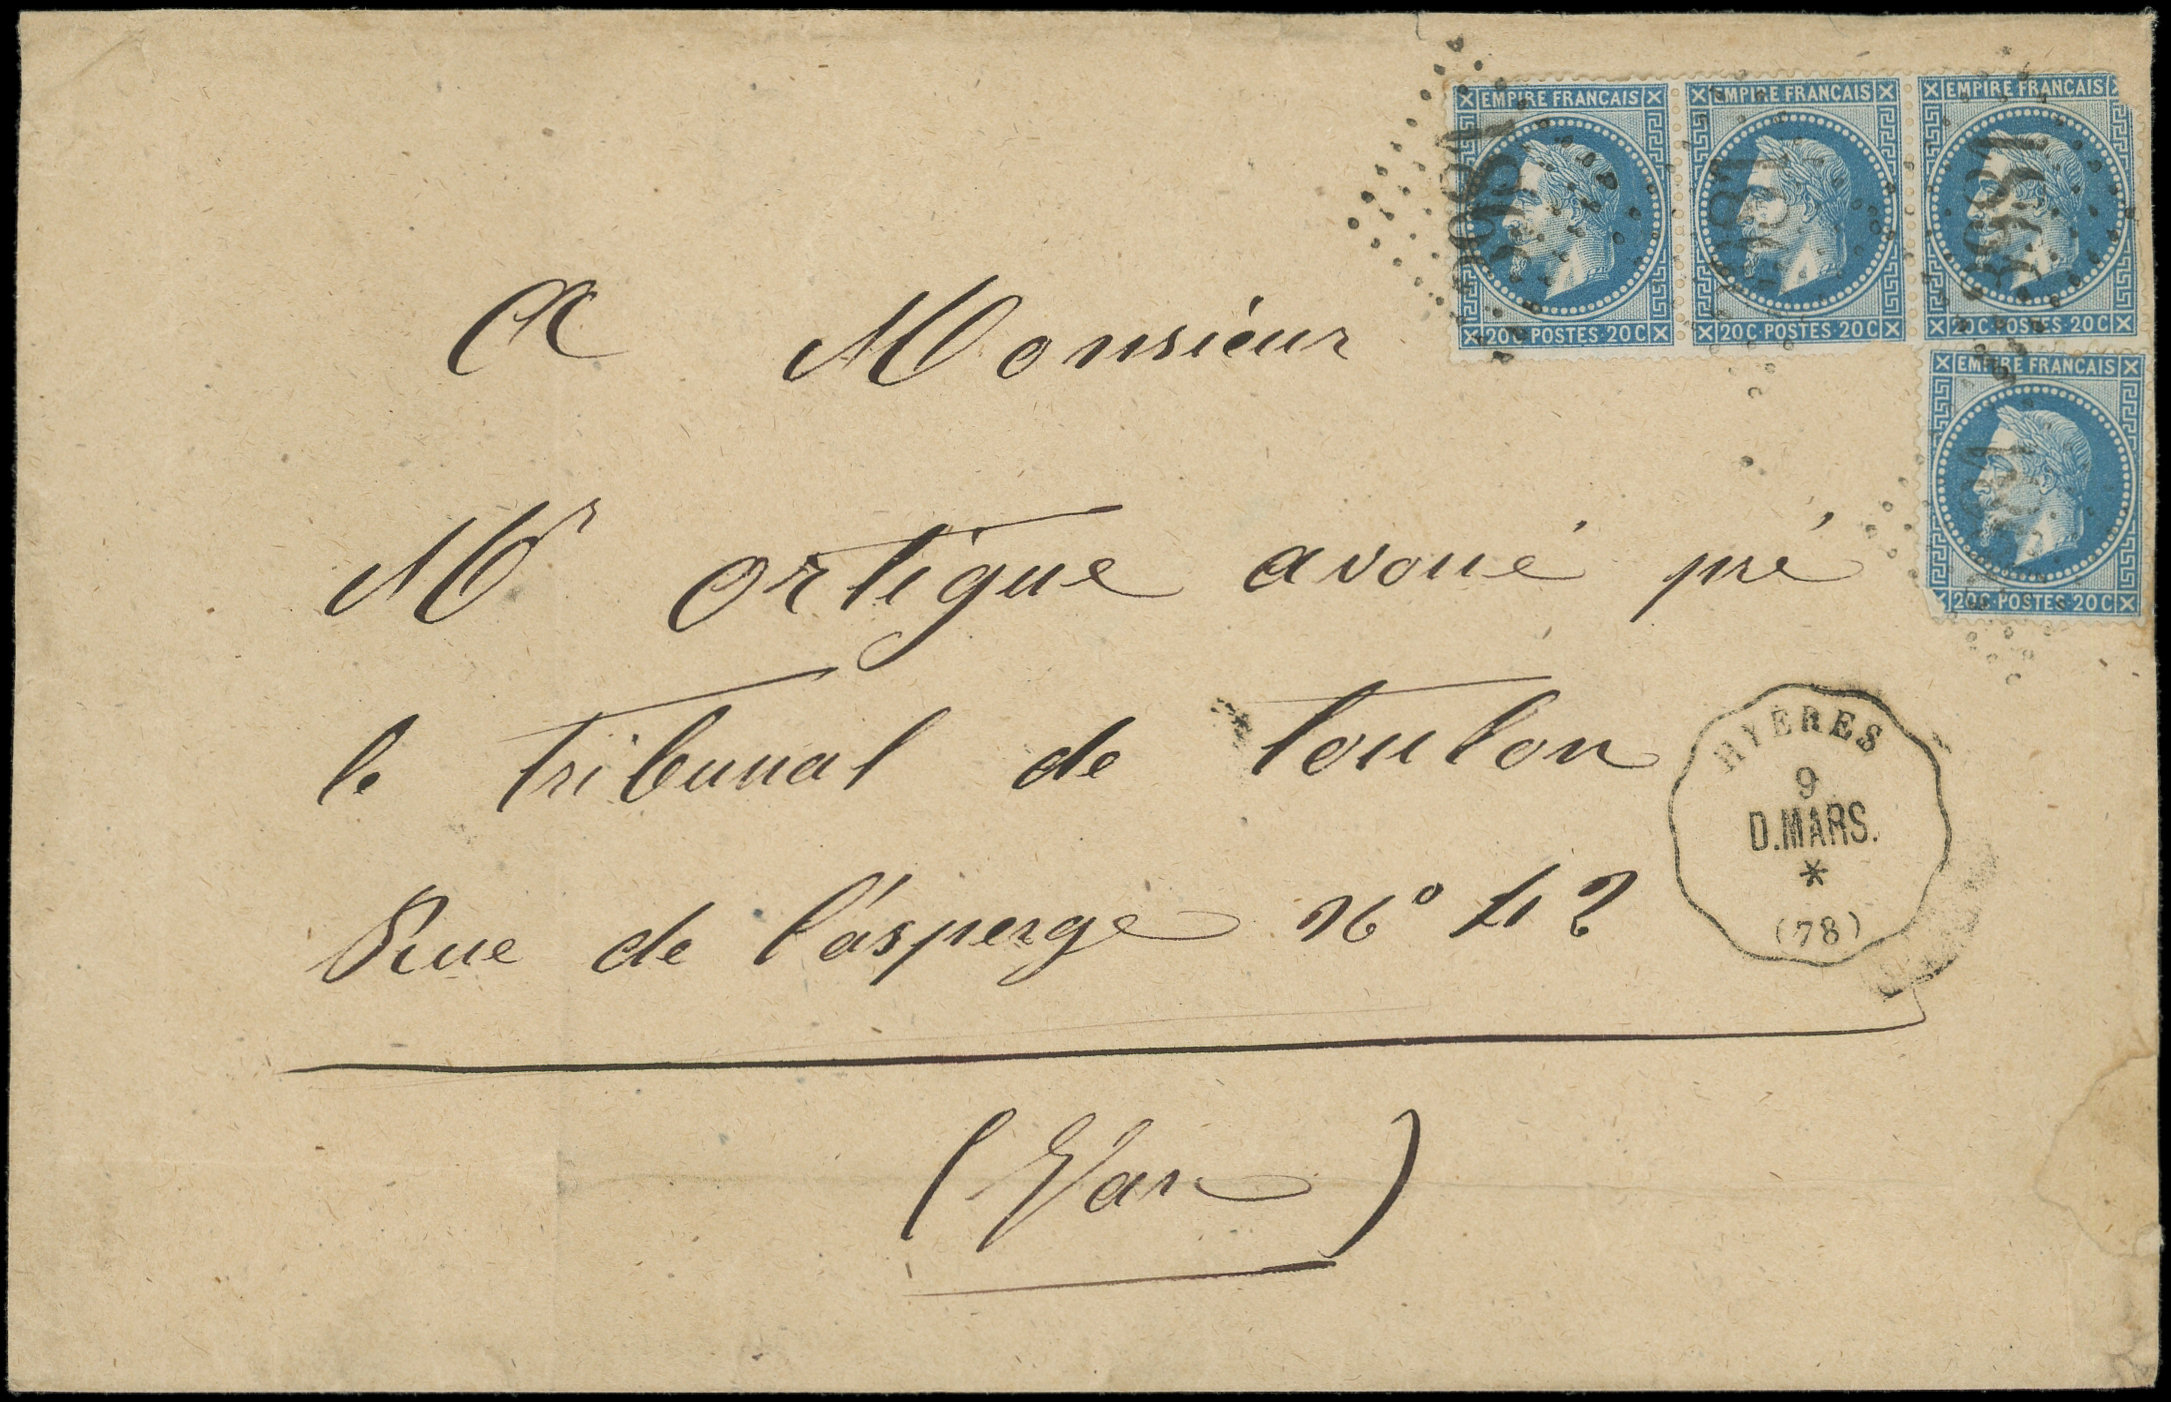 EMPIRE FRANCAIS
20C·POSTES·20C
EMPIRE FRANCAIS
20C·POSTES·20C
EMPIRE FRANCAIS
20C·POSTES·20C
EMPIRE FRANCAIS
20C·POSTES·20C
3981
3981
3981
A Monsieur
Mr Ortigue avoué pré
le tribunal de toulon
Rue de l'asperge No 42
(Var)
HYÈRES
9
D.MARS.
*
(78)